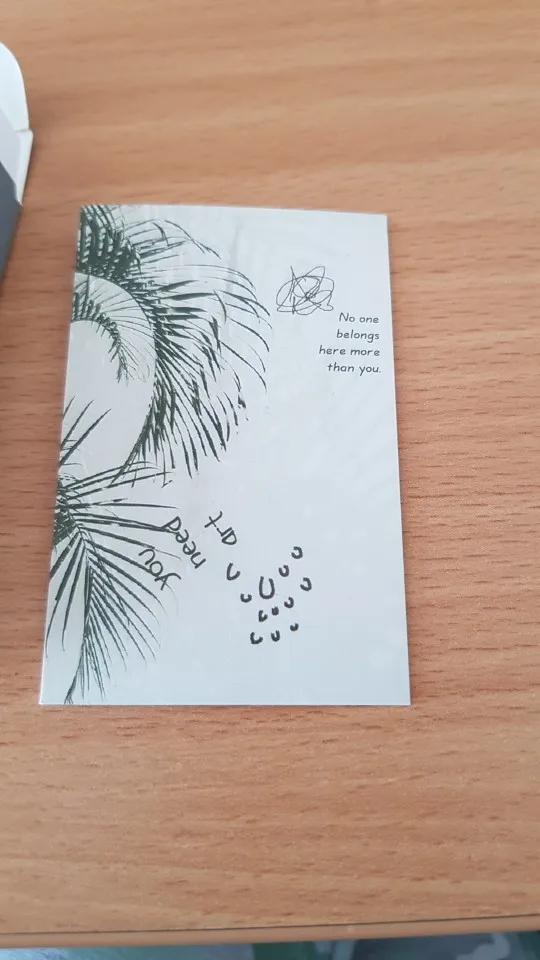 No one
belongs
here more
than you.
you
need
art